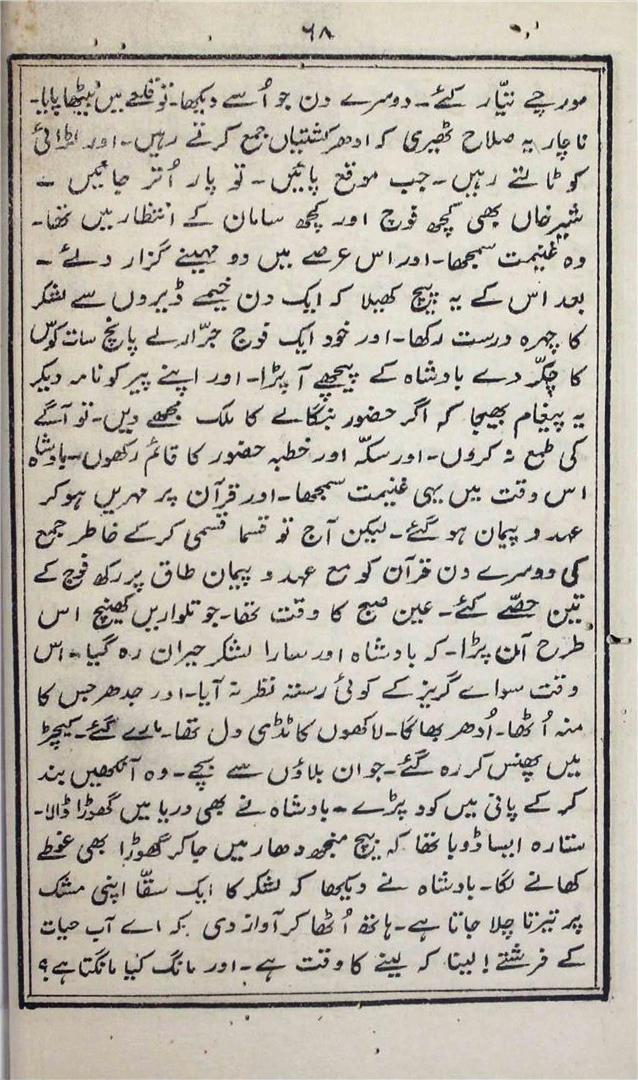 ۶۸
مورچے تیّار کئے۔ دوسرے دن جو اُسے دیکھا۔ تو قلعے میں بیٹھا پایا۔
ناچار یہ صلاح ٹھیری کہ ادھر کشتیاں جمع کرتے رہیں۔ اور لڑائی
کو ٹالتے رہیں۔ جب موقع پائیں۔ تو پار اُتر جائیں ۔
شیر خاں بھی کچھ فوج اور کچھ سامان کے انتظار میں تھا۔
وہ غنیمت سمجھا۔ اور اس عرصے میں دو مہینے گزار دئے ۔
بعد اس کے یہ پیچ کھیلا کہ ایک دن خیمے ڈیروں سے لشکر
کا چہرہ درست رکھا۔ اور خود ایک فوج جرّار لے پانچ سات کوس
کا چکّر دے بادشاہ کے پیچھے آ پڑا۔ اور اپنے پیر کو نامہ دیکر
یہ پیغام بھیجا کہ اگر حضور بنگالے کا ملک مجھے دیں۔ تو آگے
کی طمع نہ کروں۔ اور سکّہ اور خطبہ حضور کا قائم رکھوں۔ بادشاہ
اس وقت میں یہی غنیمت سمجھا۔ اور قرآن پر مہریں ہو کر
عہد و پیمان ہو گئے۔ لیکن آج تو قسما قسمی کرکے خاطر جمع
کی دوسرے دن قرآن کو مع عہد و پیمان طاق پر رکھ فوج کے
تین حصّے کئے۔ عین صبح کا وقت تھا۔ جو تلواریں کھینچ اس
طرح آن پڑا۔ کہ بادشاہ اور سارا لشکر حیران رہ گیا۔ اس
وقت سواے گریز کے کوئی رستہ نظر نہ آیا۔ اور جدھر جس کا
منہ اُٹھا۔ اُدھر بھاگا۔ لاکھوں کا ٹڈی دل تھا۔ مارے گئے۔ کیچڑ
میں پھنس کر رہ گئے۔ جو ان بلاؤں سے بچے۔ وہ آنکھیں بند
کر کے پانی میں کود پڑے ۔ بادشاہ نے بھی دریا میں گھوڑا ڈالا۔
ستارہ ایسا ڈوبا تھا کہ بیچ منجھ دھار میں جا کر گھوڑا بھی غوطے
کھانے لگا۔ بادشاہ نے دیکھا کہ لشکر کا ایک سقّا اپنی مشک
پر تیرتا چلا جاتا ہے۔ ہاتھ اُٹھا کر آواز دی کہ اے آب حیات
کے فرشتے ! لینا کہ لینے کا وقت ہے۔ اور مانگ کیا مانگتا ہے ؟